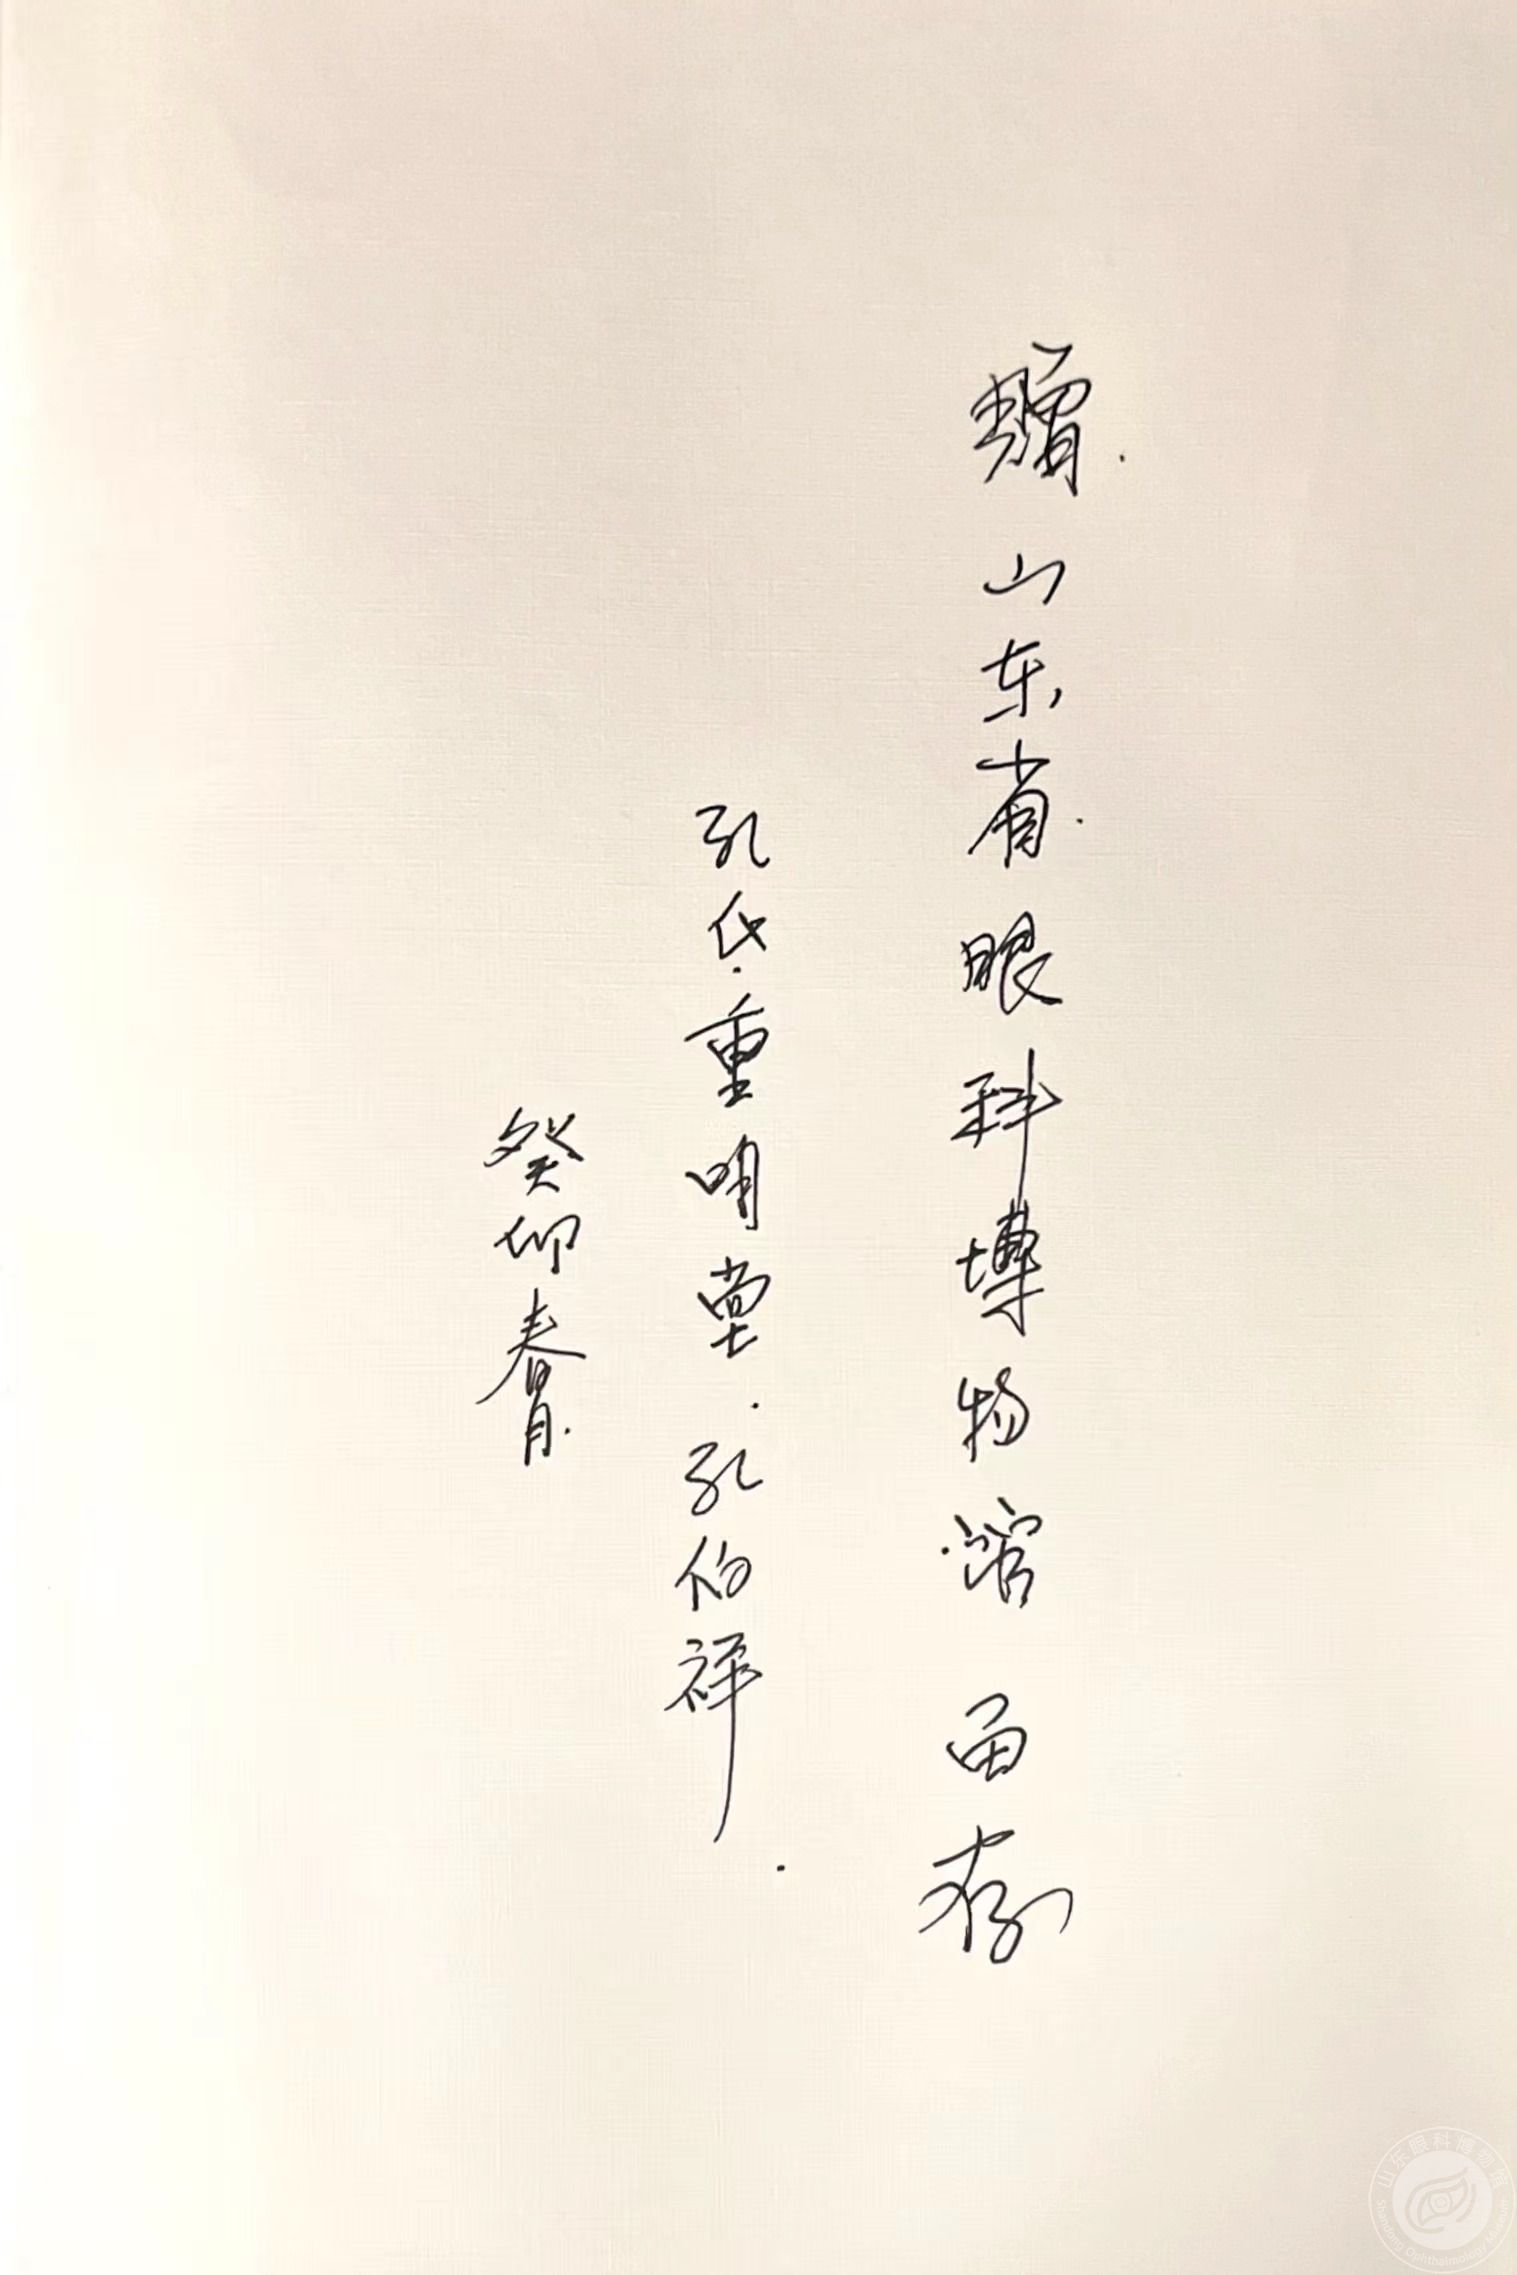 赠 山东省眼科博物馆 留存
孔氏·重明堂·孔伯祥
癸卯春月
山东眼科博物馆
Shandong Ophthalmology Museum